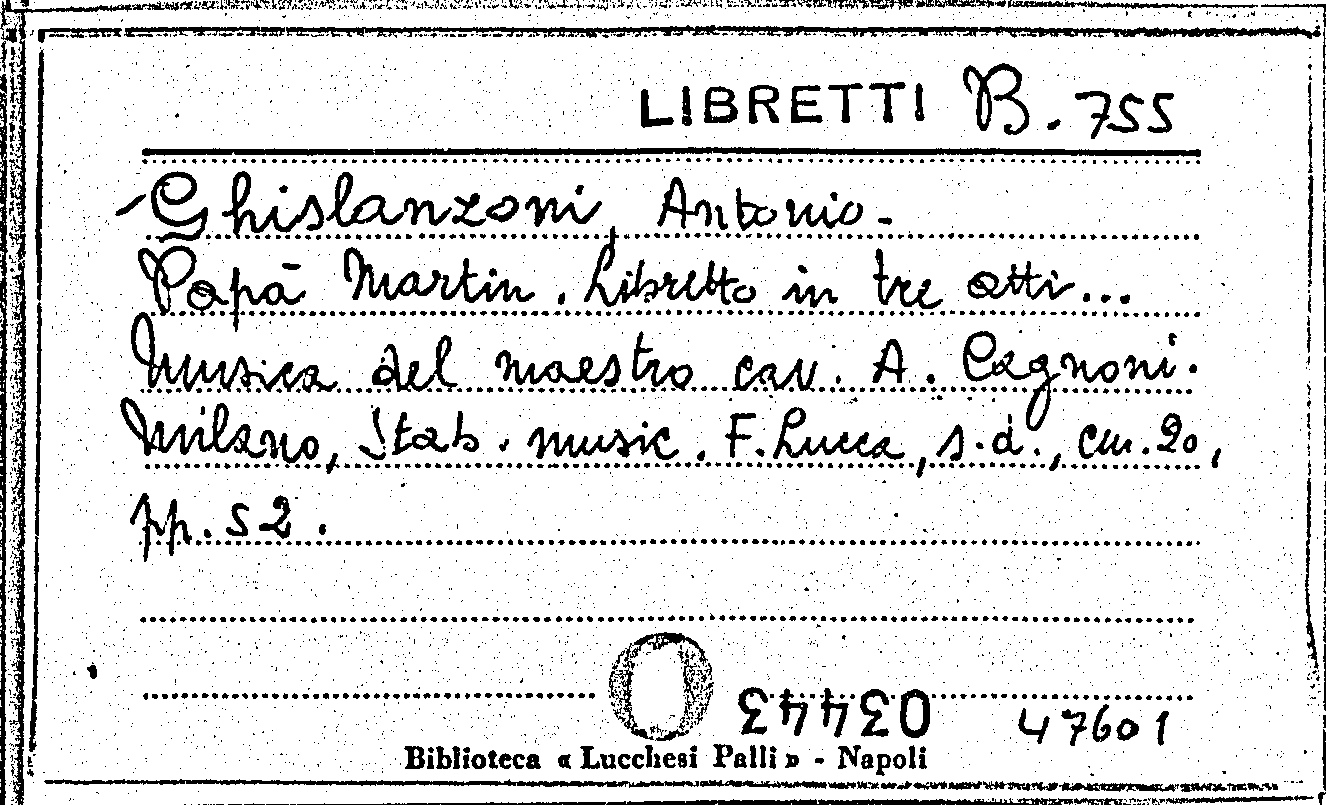 LIBRETTI B. 755
Ghislanzoni, Antonio-
Papà Martin. Libretto in tre atti...
Musica del maestro cav. A. Cagnoni.
Milano, Stab. music. F. Lucca, s.d., cm. 20,
pp. 52.
O 03443 47601
Biblioteca « Lucchesi Palli » - Napoli